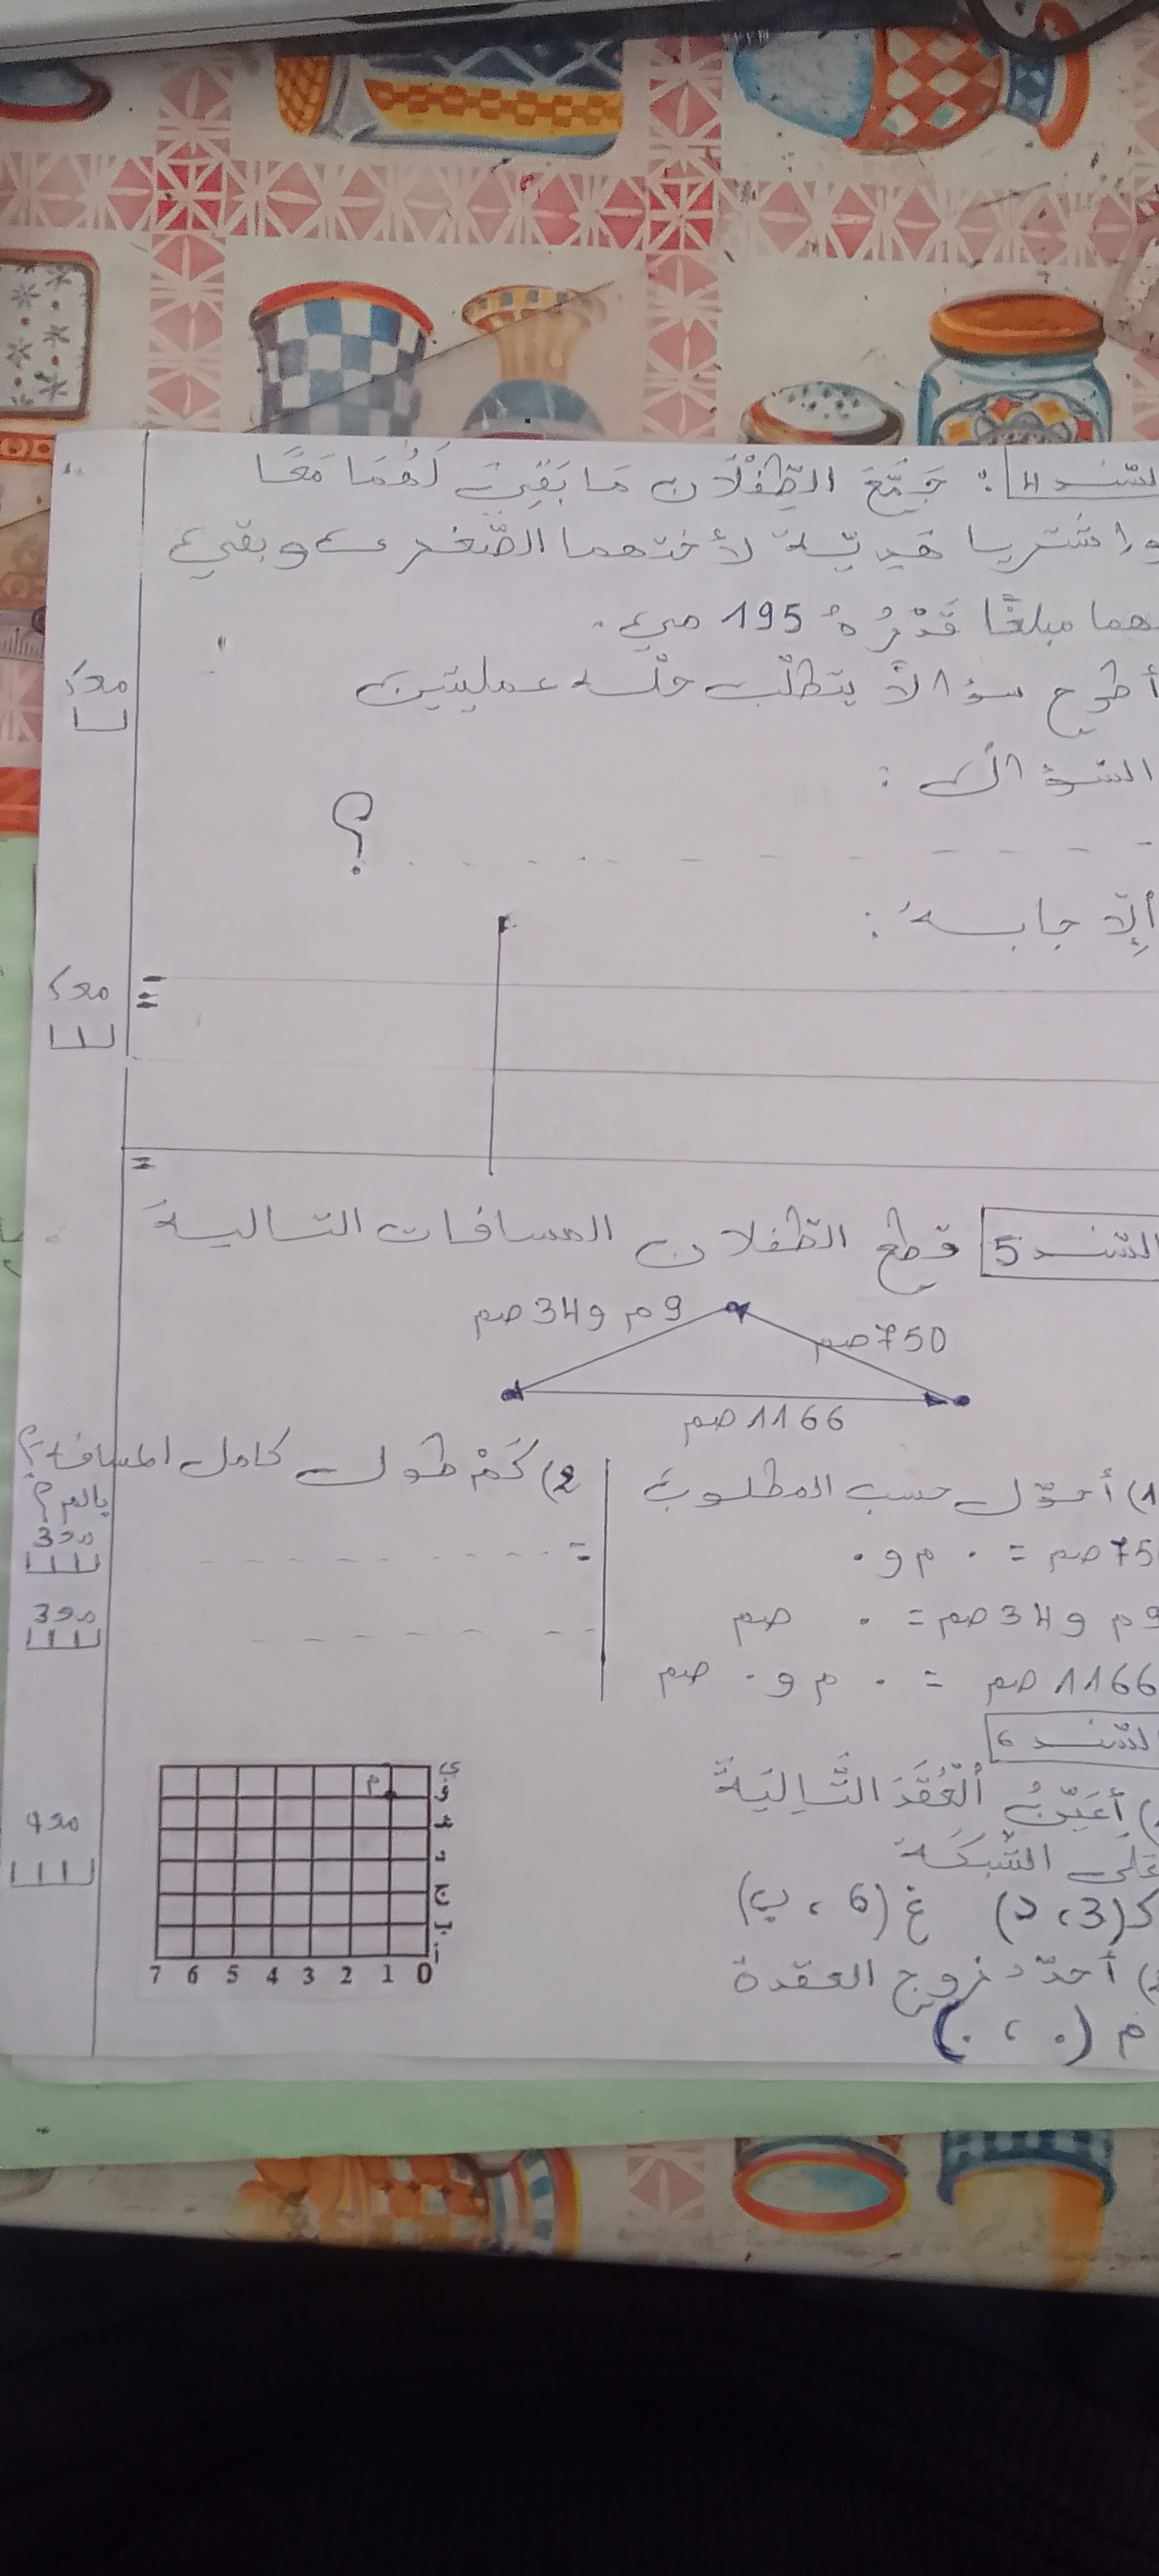 السند 4 : جَمَّعَ الطِّفْلَانِ مَا بَقِيَ لَهُمَا مَعًا
واشتريا هديّة لأختهما الصّغرى وبقي
لهما مبلغًا قَدْرُهُ 195 مي.
أطرح سؤالًا يتطلّب حلّه عمليتين
مع2
السّؤال :
؟
الإجابة :
مع2
=
=
السّند 5 قطع الطّفلان المسافات التّالية
9م و34صم
750صم
1166صم
1) أحوّل حسب المطلوب
750صم = . م و .
9م و34صم = . صم
1166 صم = . م و . صم
2) كَمْ طول كامل المسافة؟
بالصم؟
=
مع3
مع3
السّند 6
أُعَيِّنُ الْعُقَدَ التَّالِيَةَ
عَلَى الشَّبَكَة
ك(3، د) غ(6 ، ب)
أحدّد زوج العقدة
م (. ، .)
مع4
م
ي
و
ه
د
ج
ب
أ
7 6 5 4 3 2 1 0